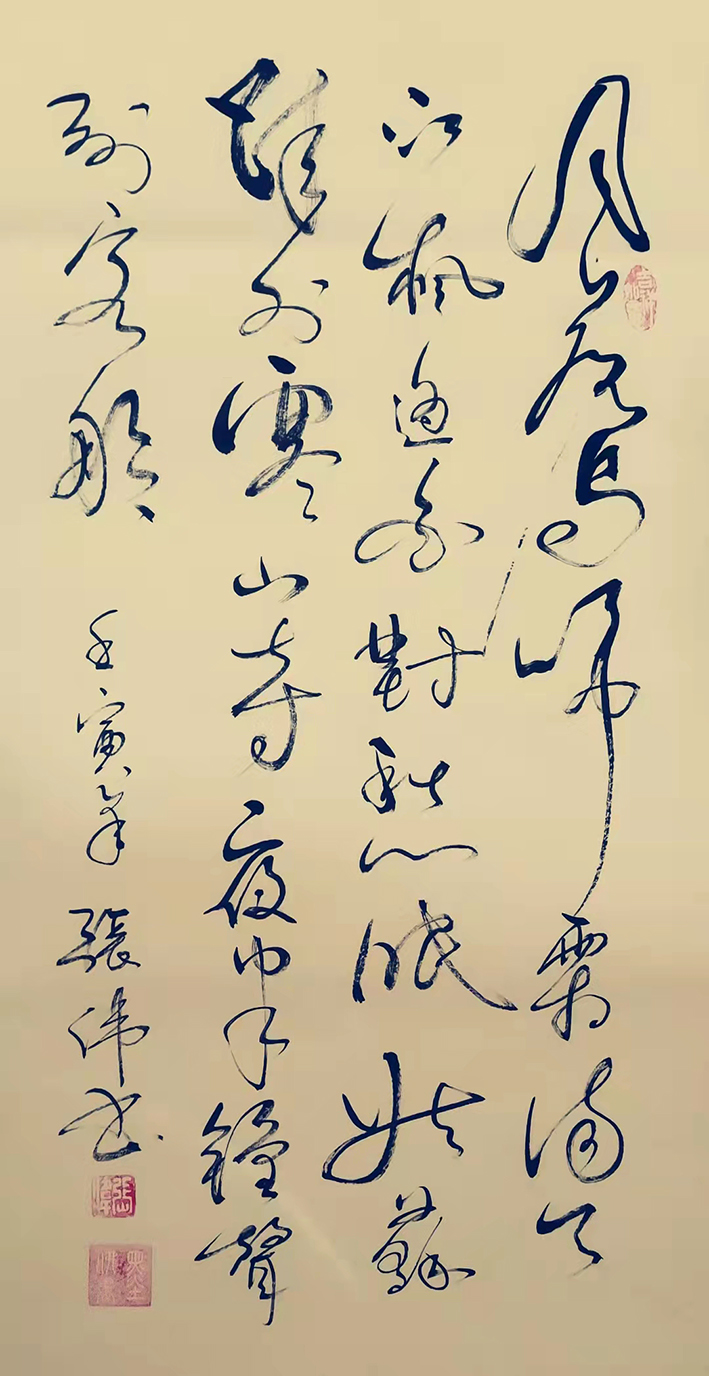 月落烏啼霜滿天
江楓漁火對愁眠姑蘇
城外寒山寺夜半鐘聲
到客船
壬寅年 張偉書
張偉